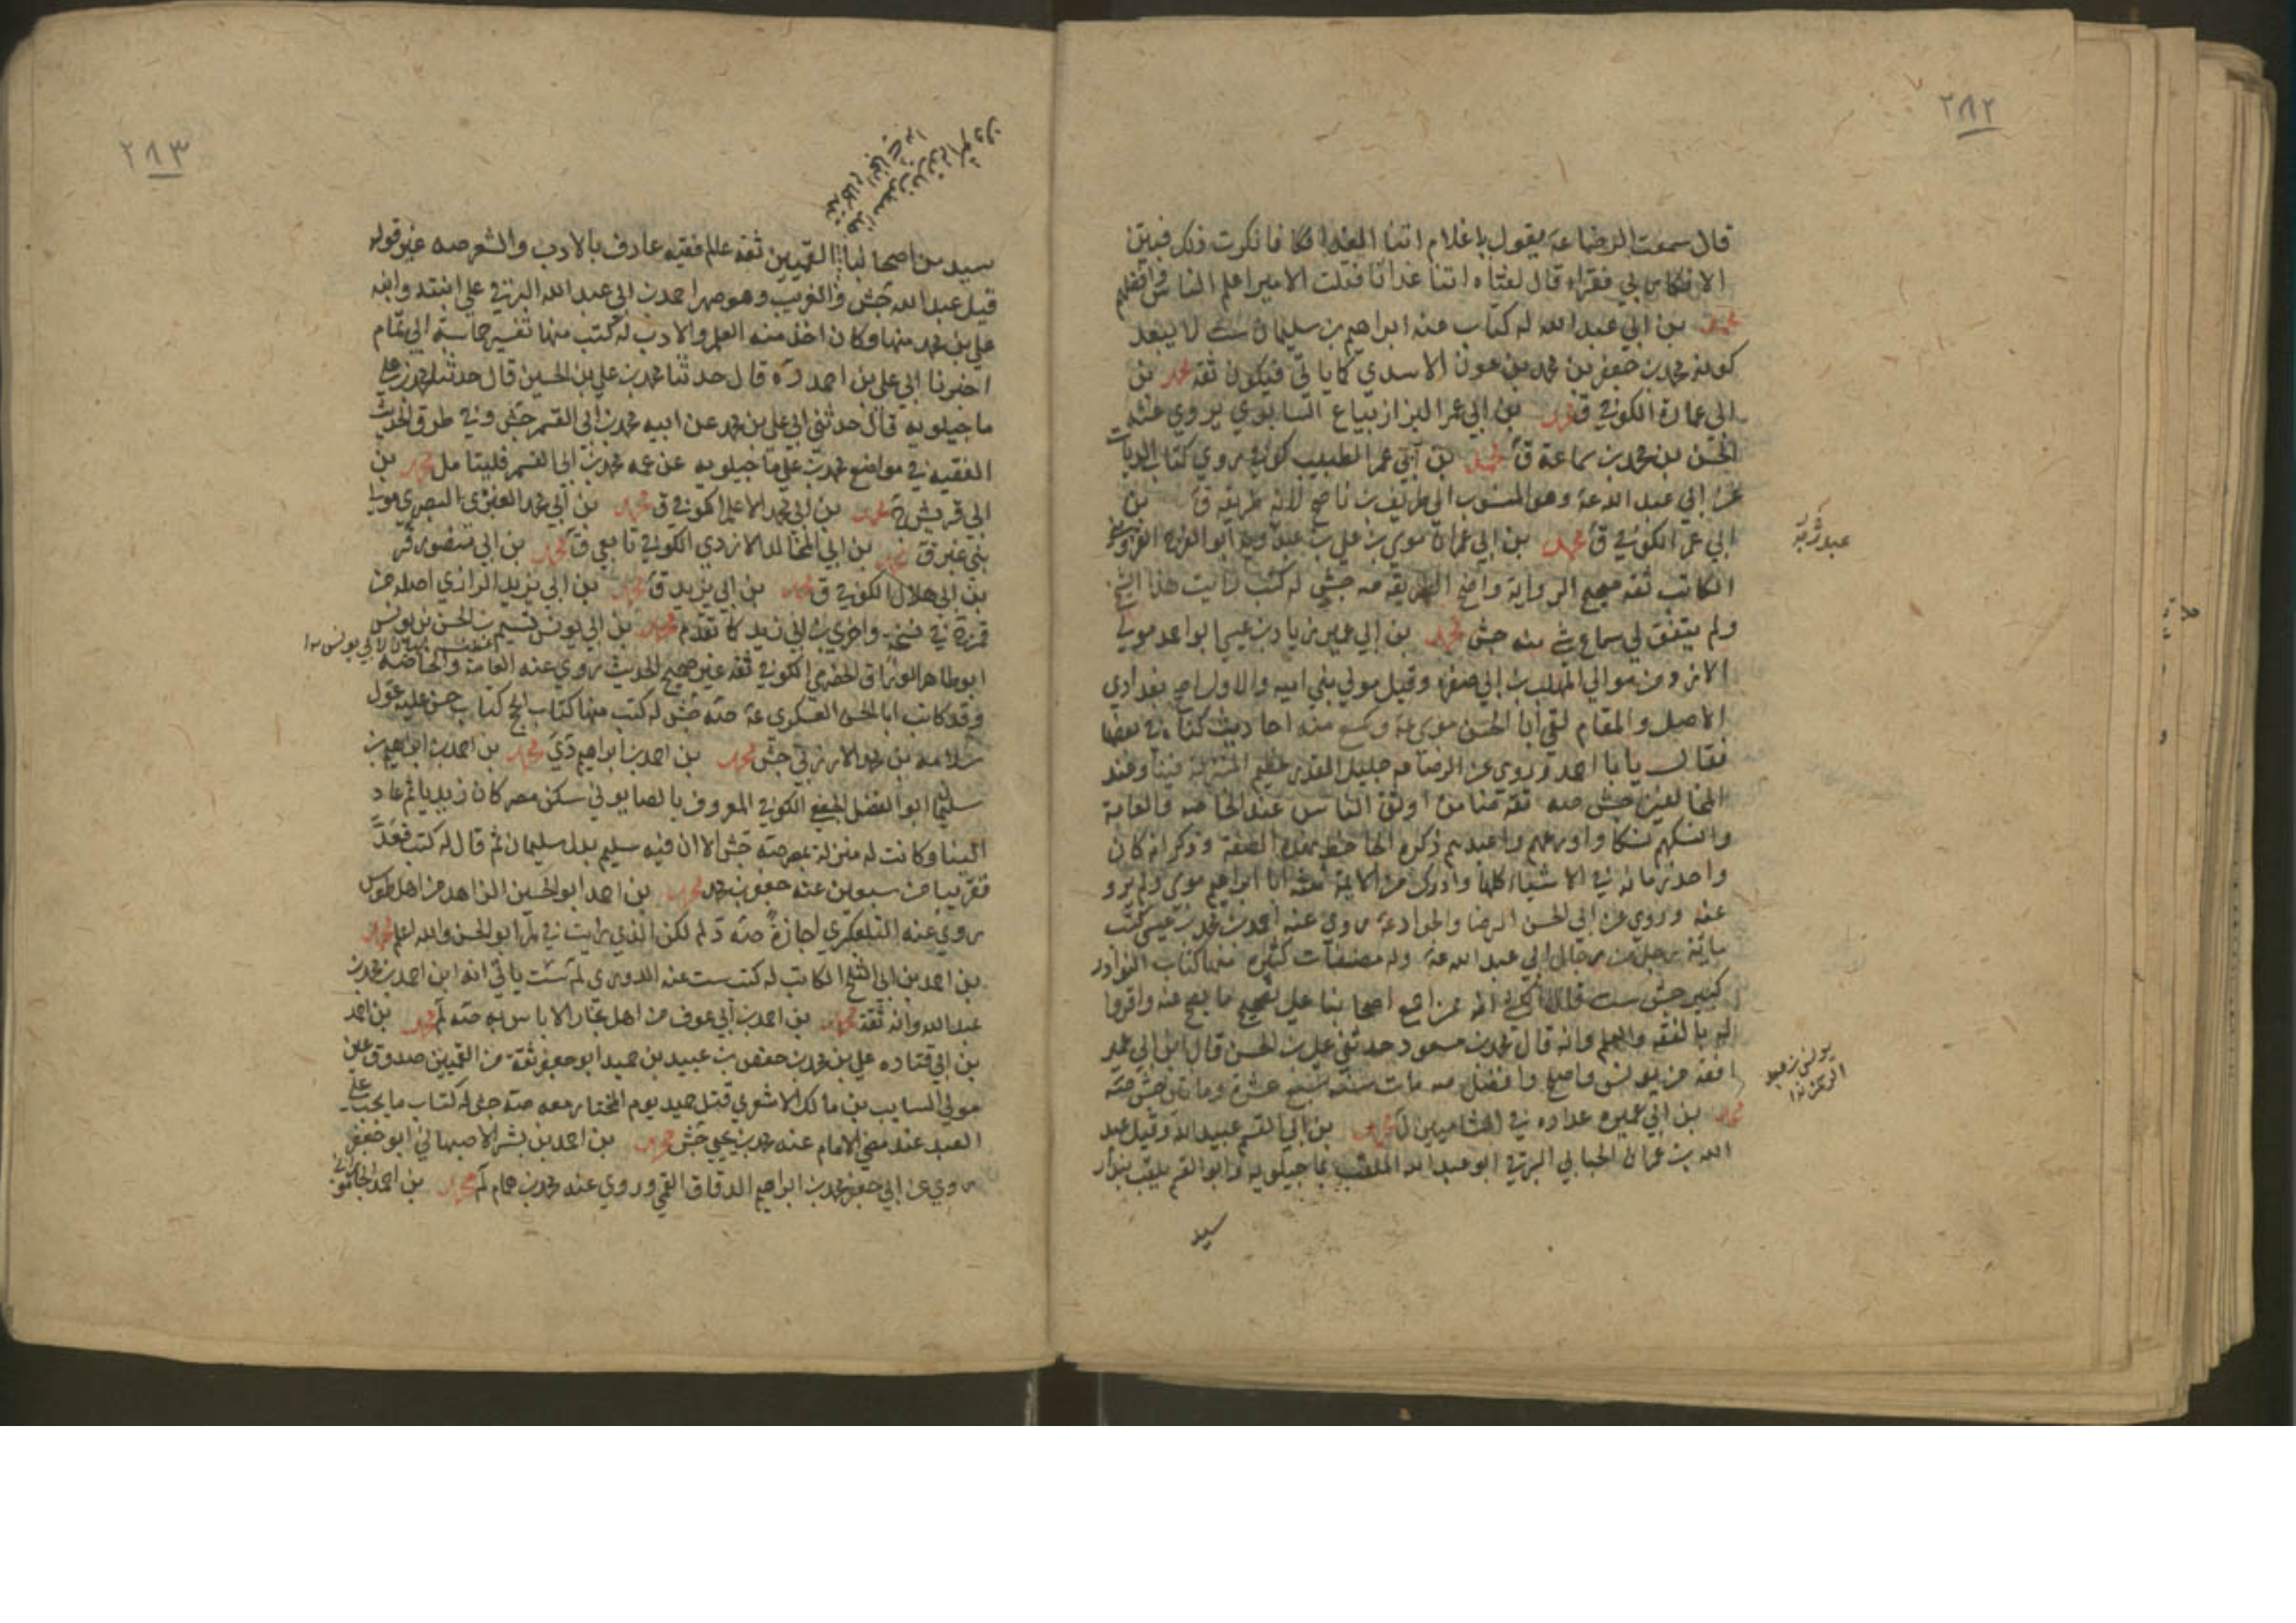 ٢٨٢
قال سمعت الرضا عة يقول يا غلام اتنا الغدا فكا فانكرت ذلك فبين
الانكار بي فقراء قال لفتاه اتنا غدانا فقلت الامير اعلم الناس وافضلهم
محمد بن ابي عبد الله له كتاب عنه ابراهيم بن سليمان ست لا يبعد
كونه محمد بن جعفر بن محمد بن عون الاسدي كما ياتي فيكون ثقة محمد بن
ابي عمارة الكوفي ق محمد بن ابي عمر البزاز بياع السابري يروي عنه
الحسن بن محمد بن سماعة ق محمد بن ابي عمر الطبيب كوفي يروي كتاب الديات
عن ابي عبد الله عة وهو المنسوب الى ظريف بن ناصح لانه طريقه ق بن
ابي عمر الكوفي ق محمد بن ابي عمران موسى بن علي بن عبد ربه ابو الفرج القزويني
الكاتب ثقة صحيح الرواية واضح الطريقة صه جش له كتب رايت هذا الشيخ
ولم يتفق لي سماع شي منه جش محمد بن ابي عمير زياد بن عيسى ابو احمد مولى
الازد من موالي المهلب بن ابي صفرة وقيل مولى بني امية والاول اصح بغدادي
الاصل والمقام لقي ابا الحسن موسى عة وسمع منه احاديث كناه في بعضها
فقال يا ابا احمد وروى عن الرضا عة جليل القدر عظيم المنزلة فينا وعند
المخالفين جش صه ثقة منا من اوثق الناس عند الخاصة والعامة
وانسكهم نسكا واورعهم واعبدهم ذكره الجاحظ بهذه الصفة وذكر انه كان
واحد زمانه في الاشياء كلها وادرك من الايمة ثلثة ابا ابراهيم موسى ولم يرو
عنه وروى عن ابي الحسن الرضا والجواد عة روى عنه احمد بن محمد بن عيسى كتب
ماية رجل من رجال ابي عبد الله عة وله مصنفات كثيرة منها كتاب النوادر
كبير جش ست قال الكشي انه ممن اجمع اصحابنا على تصحيح ما يصح عنه واقروا
له بالفقه والعلم وانه قال محمد بن مسعود حدثني علي بن الحسن قال ابن ابي عمير
افقه من يونس واصلح وافضل صه مات سنة سبع عشرة ومايتين جش صه
محمد بن ابي عميرة عداده في الشاميين ل محمد بن ابي القسم عبيد الله وقيل عبد
الله بن عمران الجنابي البرقي ابو عبد الله الملقب ماجيلويه وابو القسم يلقب بندار
عبد ربه
يونس بن عبد الرحمن
سيد
٢٨٣
سيد من اصحابنا القميين ثقة عالم فقيه عارف بالادب والشعر صه غير قوله
قيل عبد الله جش والغريب وهو صهر احمد بن ابي عبد الله البرقي على ابنته وابنه
علي بن محمد منها وكان اخذ منه العلم والادب له كتب منها تفسير حماسة ابي تمام
اخبرنا ابي علي بن احمد ره قال حدثنا محمد بن علي بن الحسين قال حدثنا محمد بن علي
ماجيلويه قال حدثني ابي علي بن محمد عن ابيه محمد بن ابي القسم جش وفي طرق الحديث
الفقيه في مواضع محمد بن علي ماجيلويه عن عمه محمد بن ابي القسم فليتامل محمد بن
ابي قريش محمد بن ابي محمد الاعلم الكوفي ق محمد بن ابي محمد العنبري البصري مولى
بني عنبر ق محمد بن ابي المخالد الازدي الكوفي تابعي ق محمد بن ابي منصور ق
بن ابي هلال الكوفي ق محمد بن ابي يزيد ق محمد بن ابي يزيد الرازي اصله من
قم في نسخة واخرى بن ابي زيد كما تقدم محمد بن ابي يونس تسنيم بن الحسن بن يونس
ابو طاهر الوراق الحضرمي الكوفي ثقة عين صحيح الحديث روى عنه العامة والخاصة
وقد كاتب ابا الحسن العسكري عة صه جش له كتب منها كتاب الحج كتاب حسن عليه عول
سلامة بن محمد الارزني جش محمد بن احمد بن ابراهيم دي محمد بن احمد بن ابراهيم بن
سليمان ابو الفضل الجعفي الكوفي المعروف بالصابوني سكن مصر كان زيديا ثم عاد
الينا وكانت له منزلة بمصر صه جش الا ان فيه سليم بدل سليمان ثم قال له كتب فعد
تقريبا من سبعين عنه جعفر بن محمد محمد بن احمد ابو الحسين الزاهد من اهل طوس
روى عنه التلعكبري اجازة صه د لم لكن الذي رايت في لم ابو الحسن والله اعلم محمد
بن احمد بن ابي الثلج الكاتب له كتب ست عنه الدوري لم ست ياتي انه ابن احمد بن محمد بن
عبد الله وانه ثقة محمد بن احمد بن ابي عوف من اهل بخارا لا باس به صه لم محمد بن احمد
بن ابي قتادة علي بن محمد بن حفص بن عبيد بن حميد ابو جعفر ثقة من القميين صدوق عين
مولى السايب بن مالك الاشعري قتل حميد يوم المختار معه صه جش له كتاب ما يجب على
العبد عند مضي الامام عنه محمد بن يحيى جش محمد بن احمد بن بشر الاصبهاني ابو جعفر
روى عن ابي جعفر محمد بن ابراهيم الدقاق القمي وروى عنه محمد بن همام لم محمد بن احمد